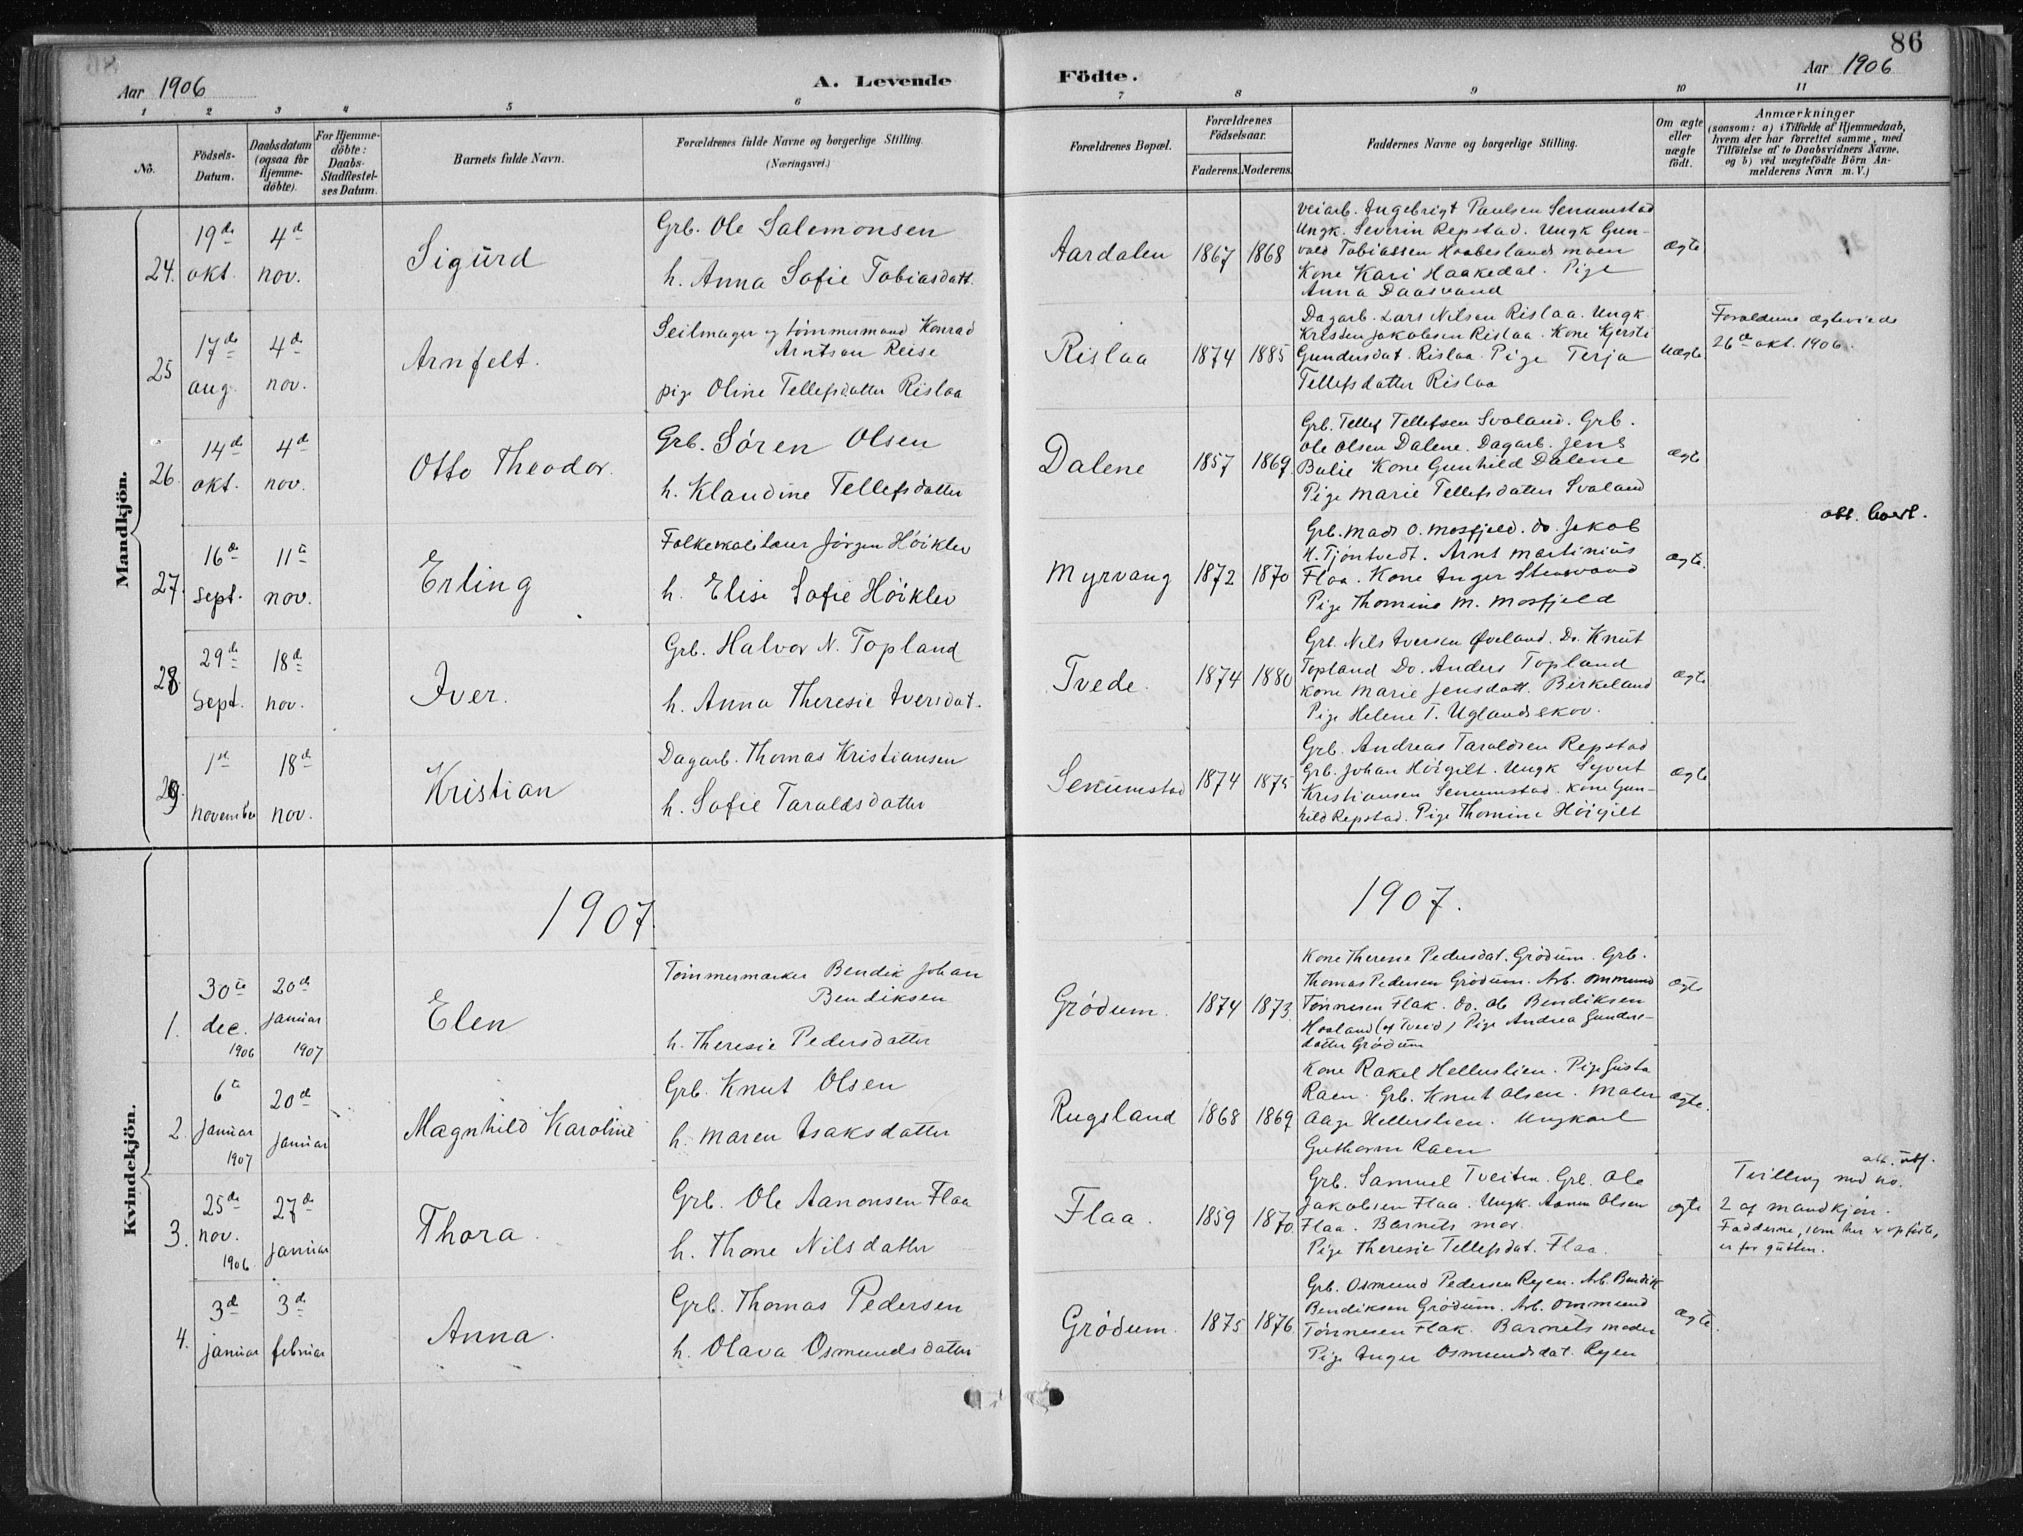 86
Aar 1906
A. Levende
Födte.
Aar 1906
1 2 3 4 5 6 7 8 9 10 11
No.
Födsels-Datum.
Daabsdatum (ogsaa för Hjemme-döbte).
For Hjemme-döbte: Daabs-Stadfæstel-ses Datum.
Barnets fulde Navn.
Forældrenes fulde Navne og borgerlige Stilling.
(Næringsvei.)
Forældrenes Bopæl.
Forældrenes Födselsaar.
Faderens. Moderens.
Faddernes Navne og borgerlige Stilling.
Om ægte eller uægte födt.
Anmærkninger
(saasom: a) i Tilfælde af Hjemmedaab,
hvem der har forrettet samme, med
Tilföielse af to Daabsvidners Navne,
og b) ved uægtefödte Börn An-
melderens Navn m. V.)
Mandkjön.
24. 19de okt. 4de nov.
Sigurd
Grb. Ole Salemonsen
h. Anna Sofie Tobiasdatt.
Aardalen 1867 1868
Veiarb. Ingebrigt Paulsen Senumstad
Ungk. Severin Repstad. Ungk Gun-
vald Tobiassen Haabeslandsmoen
Kone Kari Haakedal. Pige
Anna Daasvand
ægte
25 17de aug. 4de nov.
Arnfelt.
Seilmager og tømmermand Konrad
Arntsen Reise
pige Oline Tellefsdatter Rislaa
Rislaa 1874 1885
Dagarb. Lars Nilsen Rislaa. Ungk.
Kristen Jakobsen Rislaa. Kone Kjersti
Gundersdat. Rislaa. Pige Terja
Tellefsdatter Rislaa
uægte
Forældrene ægteviede
26de okt. 1906.
26. 14de okt. 4de nov.
Otto Theodor.
Grb. Søren Olsen
h. Klaudine Tellefsdatter
Dalene 1857 1869.
Grb. Tellef Tellefsen Svaland. Grb.
Ole Olsen Dalene. Dagarb. Jens
Bulie Kone Gunhild Dalene
Pige Marie Tellefsdatter Svaland
ægte
27. 16de sept. 11te nov.
Erling
Folkeskolelærer Jørgen Høiklev
h. Elise Sofie Høiklev
Myrvang 1872 1870
Grb. Mads O. Mosfjeld. Do. Jakob
K. Tjøntvedt. Arnt Martinius
Flaa. Kone Inger Stensvand
Pige Thomine M. Mosfjeld
ægte.
28. 29de sept. 18de nov.
Iver.
Grb. Halvor N. Topland
h. Anna Theresie Iversdat.
Tvede. 1874 1880
Grb. Nils Iversen Øveland. Do. Knut
Topland Do. Anders Topland
Kone Marie Jensdatt. Birkeland
Pige Helene T. Uglandsskov.
ægte
29. 1ste november 18de nov.
Kristian
Dagarb. Thomas Kristiansen
h. Sofie Taraldsdatter
Senumstad 1874 1875
Grb. Andreas Taraldsen Repstad
Grb. Johan Høigilt. Ungk Syvert
Kristiansen Senumstad. Kone Gun-
hild Repstad. Pige Thomine Høigilt
ægte
Kvindekjön.
1907.
1907.
1. 30te dec. 1906 20de januar 1907
Elen
Tømmermærker Bendik Johan
Bendiksen
h. Theresie Pedersdatter
Grødum. 1874 1873.
Kone Therese Pedersdat. Grødum. Grb.
Thomas Pedersen Grødum. Arb. Ommund
Tønnesen Flak. Do. Ole Bendiksen
Haaland (af Tveid) Pige Andrea Gunders-
datter Grødum
ægte
2. 6te januar 1907 20de januar
Magnhild Karoline
Grb. Knut Olsen
h. Maren Isaksdatter
Rugsland 1868 1869
Kone Rakel Hellerslien. Pige Gusta
Raen. Grb. Knut Olsen. Maler
Aage Hellerslien. Ungkarl
Guthorm Raen
ægte.
3. 25de nov. 1906 27de januar
Thora.
Grb. Ole Aanonsen Flaa
h. Thone Nilsdatter
Flaa. 1859 1870.
Grb. Samuel Tveiten. Grb. Ole
Jakobsen Flaa. Ungk. Aanon Olsen
Flaa. Barnets mor.
Pige Theresie Tellefsdat. Flaa.
ægte
Tvilling med no.
2 af mandkjøn.
Fadderne, som her er opførte,
er for gutten.
4. 3de januar 3de februar
Anna.
Grb. Thomas Pedersen
h. Olava Osmundsdatter
Grødum. 1875 1876
Grb. Osmund Pedersen Ryen. Arb. Bendik
Bendiksen Grødum. Arb. Ommund
Tønnesen Flak. Barnets moder
Pige Inger Osmundsdat. Ryen
ægte.